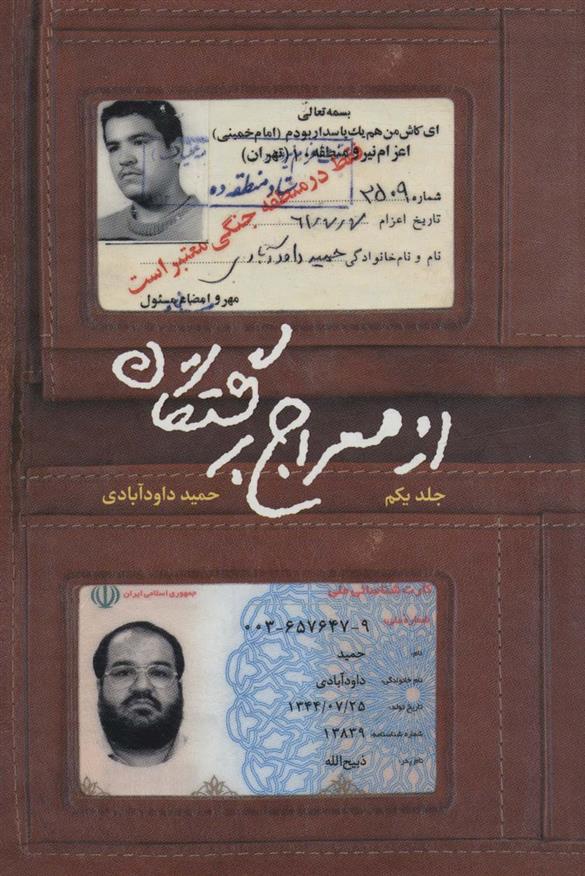 بسمه تعالی
ای کاش من هم یك پاسدار بودم (امام خمینی)
اعزام نیرو منطقه ۱۰ (تهران)
ستاد منطقه ده
فقط در منطقه جنگی معتبر است
شماره ۲۵۰۹
تاریخ اعزام
نام و نام خانوادگی حمید داودآبادی
مهر و امضاء مسئول
از معراج برگشتگان
جلد یکم
حمید داودآبادی
کارت شناسائی ملی
جمهوری اسلامی ایران
شماره ملی: ۰۰۳-۶۵۷۶۴۷-۹
نام: حمید
نام خانوادگی: داودآبادی
تاریخ تولد: ۱۳۴۴/۰۷/۲۵
شماره شناسنامه: ۱۳۸۳۹
نام پدر: ذبیح‌الله